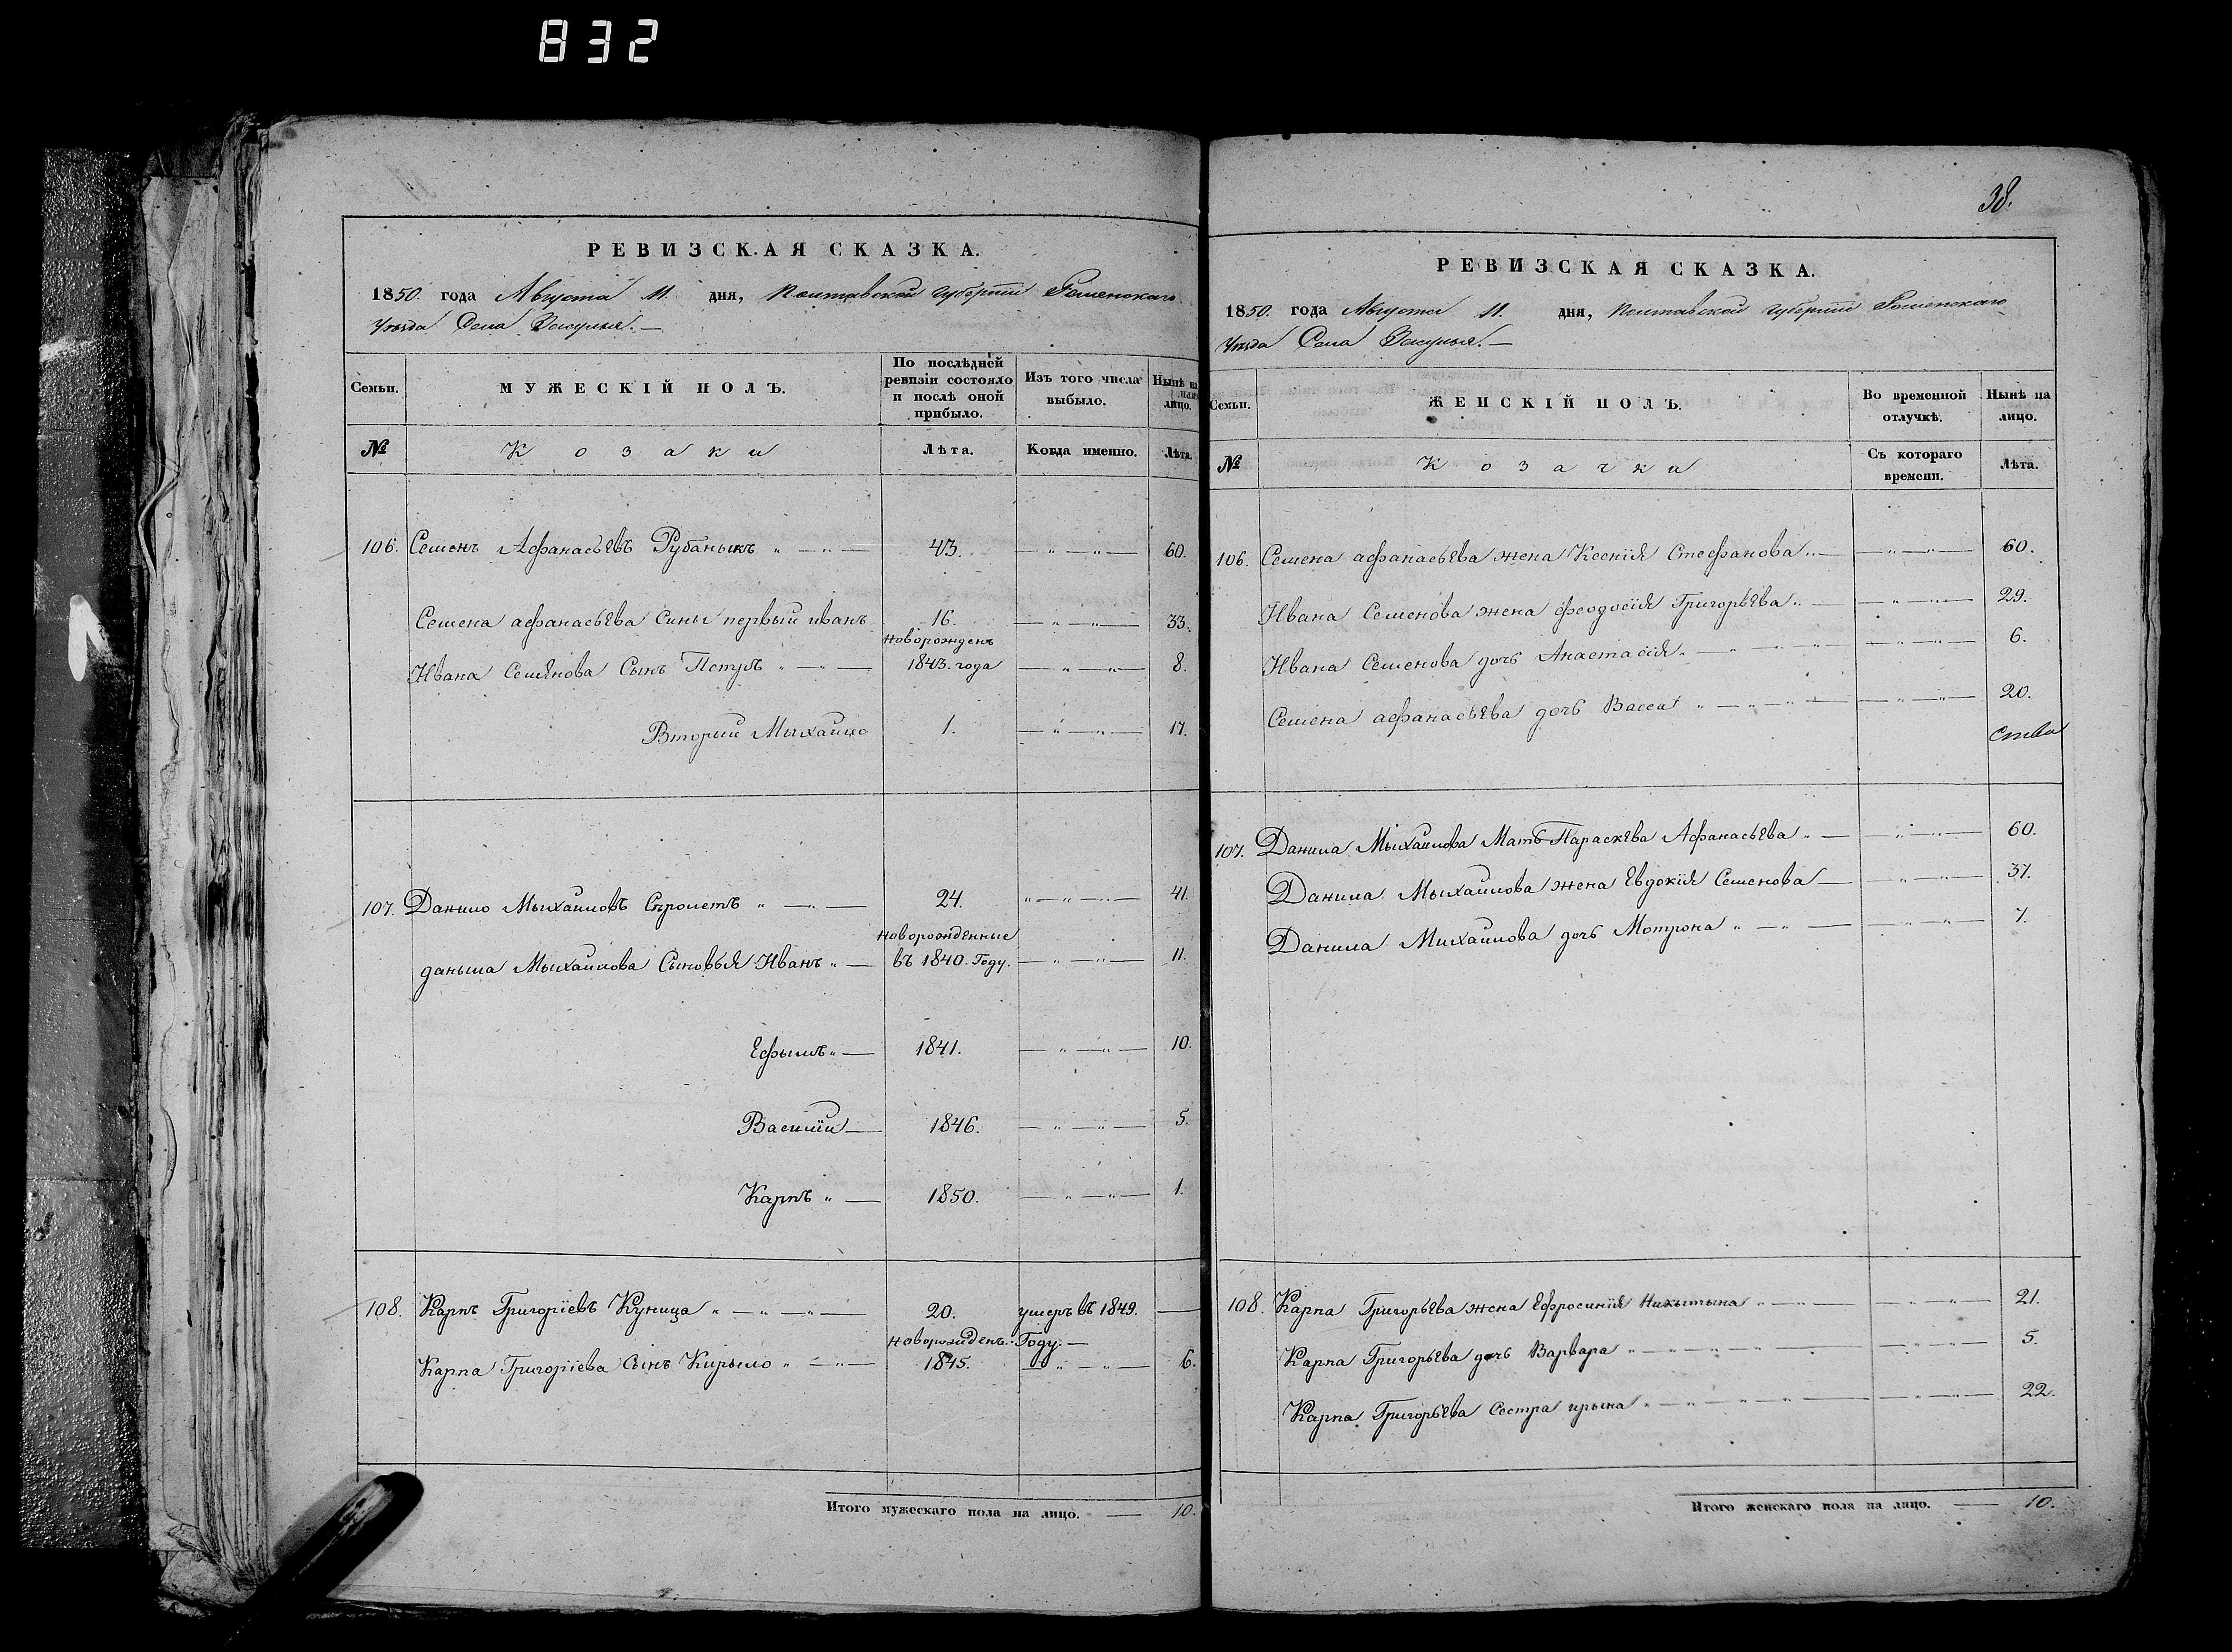 832
РЕВИЗСКАЯ СКАЗКА.
1850. года Августа 11. дня, Полтавской Губернїи Роменскаго
Уѣзда Села
Семьи.
МУЖЕСКІЙ ПОЛЪ.
По послѣдней ревизіи состояло и послѣ оной прибыло.
Изъ того числа выбыло.
Нынѣ на лицо.
№
Козаки
Лѣта.
Когда именно.
Лѣта.
106. Семенъ Афанасьевъ 43. 60.
Семена афанасьева Сины первый иванъ 16. 33.
Новорожденъ
Ивана Семѣнова Сынъ Петръ 1843. года 8.
Вторый Мыхайло 1. 17.
107. Данило Мыхайловъ 24. 41.
Новорожденные
даныла Мыхайлова Сыновья Иванъ въ 1840. Году. 11.
Ефымъ 1841. 10.
Василїй 1846. 5.
Карпъ 1850. 1.
108. Карпъ Григорїевъ Куница 20. умеръ въ 1849.
Новорожденъ. Году.
Карпа Григорїева Сынъ Кирыло 1845. 6.
Итого мужескаго пола на лицо. 10.
38.
РЕВИЗСКАЯ СКАЗКА.
1850. года Августа 11. дня, Полтавской Губернїи Роменскаго
Уѣзда Села
Семьи.
ЖЕНСКІЙ ПОЛЪ.
Во временной отлучкѣ.
Нынѣ на лицо.
№
Козачки
Съ котораго времени.
Лѣта.
106. Семена афанасьева жена Ксенїя Стефанова 60.
Ивана Семенова жена феодосїя Григорьева 29.
Ивана Семенова дочь Анастасїя 6.
Семена афанасьева дочь Васса 20.
107. Данила Мыхайлова Мать Параскева Афанасьева 60.
Данила Мыхайлова жена Евдокїя Семенова 37.
Данила Михайлова дочь Мотрона 7.
108. Карпа Григорьева жена Ефросинїя Никытына 21.
Карпа Григорьева дочь Варвара 5.
Карпа Григорьева Сестра ирына 22.
Итого женскаго пола на лицо. 10.